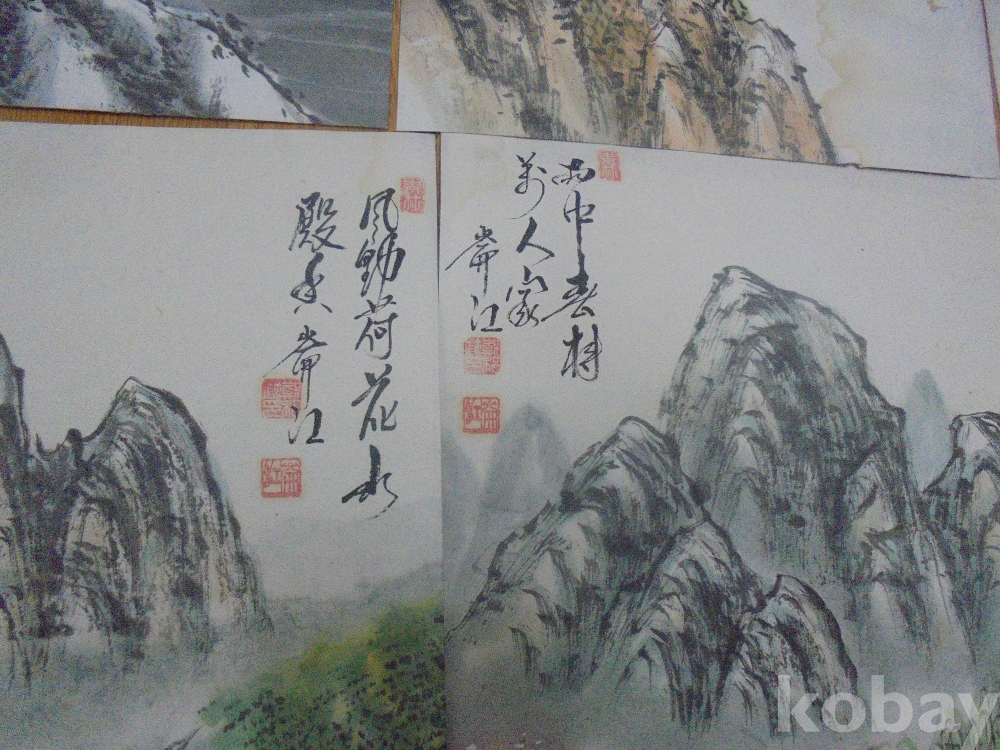 風動荷花水
殿香 崙江
雨中春樹
萬人家
崙江
kobay